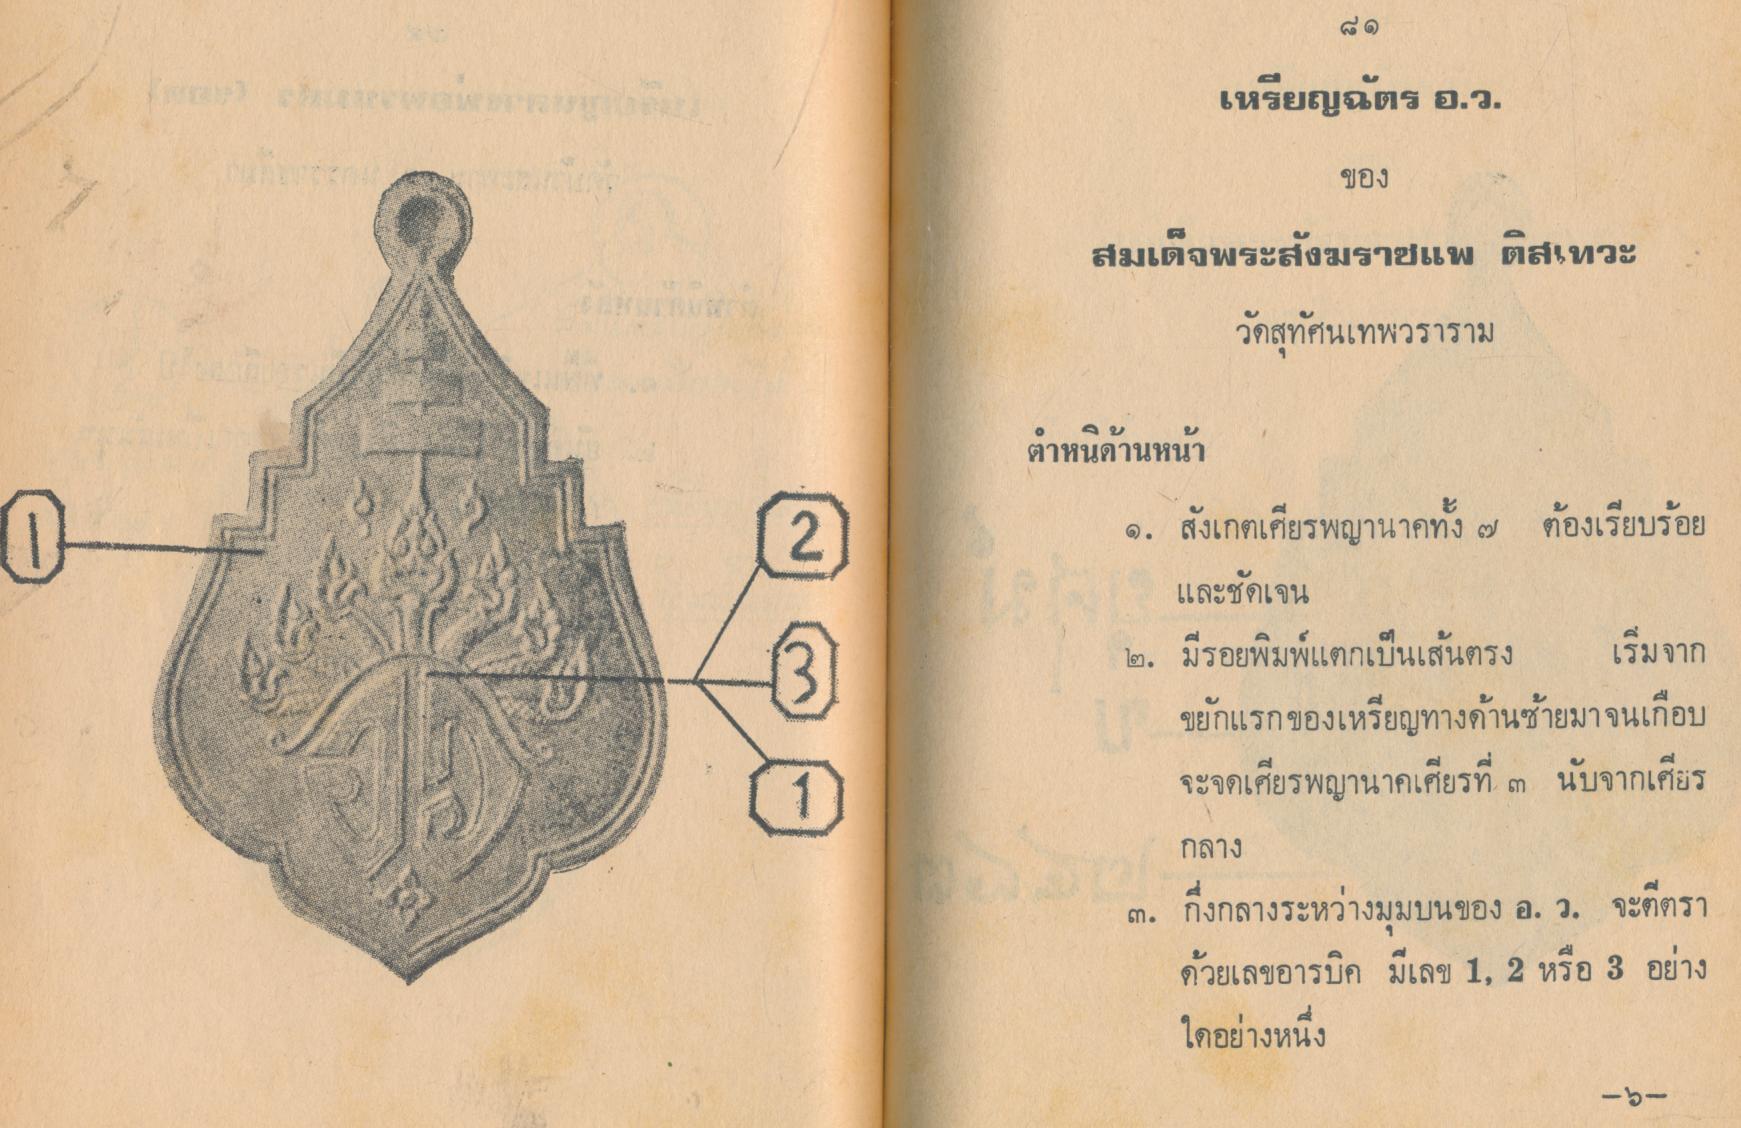 1
2
3
1
๘๑
เหรียญฉัตร อ.ว.
ของ
สมเด็จพระสังฆราชแพ ติสเทวะ
วัดสุทัศนเทพวราราม
ตำหนิด้านหน้า
๑. สังเกตเศียรพญานาคทั้ง ๗ ต้องเรียบร้อย
และชัดเจน
๒. มีรอยพิมพ์แตกเป็นเส้นตรง เริ่มจาก
ขยักแรกของเหรียญทางด้านซ้ายมาจนเกือบ
จะจดเศียรพญานาคเศียรที่ ๓ นับจากเศียร
กลาง
๓. กึ่งกลางระหว่างมุมบนของ อ. ว. จะตีตรา
ด้วยเลขอารบิค มีเลข 1, 2 หรือ 3 อย่าง
ใดอย่างหนึ่ง
—๖—